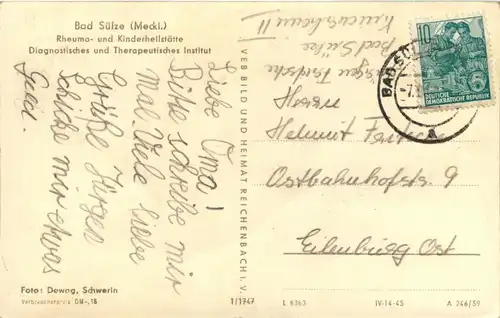 Bad Sülze (Meckl.)
Rheuma- und Kinderheilstätte
Diagnostisches und Therapeutisches Institut
Liebe Oma!
Bitte schreibe mir
mal. Viele liebe
Grüße Jürgen
Schicke mir etwas
Geld.
Fotos Dewag, Schwerin
Verbraucherpreis DM -,18
VEB BILD UND HEIMAT REICHENBACH I. V.
1/1747
Bad Sülze
II
10
DEUTSCHE
DEMOKRATISCHE REPUBLIK
BAD SÜ
a
Herrn
Helmut
Ostbahnhofstr. 9
Eilenburg Ost
L 8363
IV-14-45
A 246/59